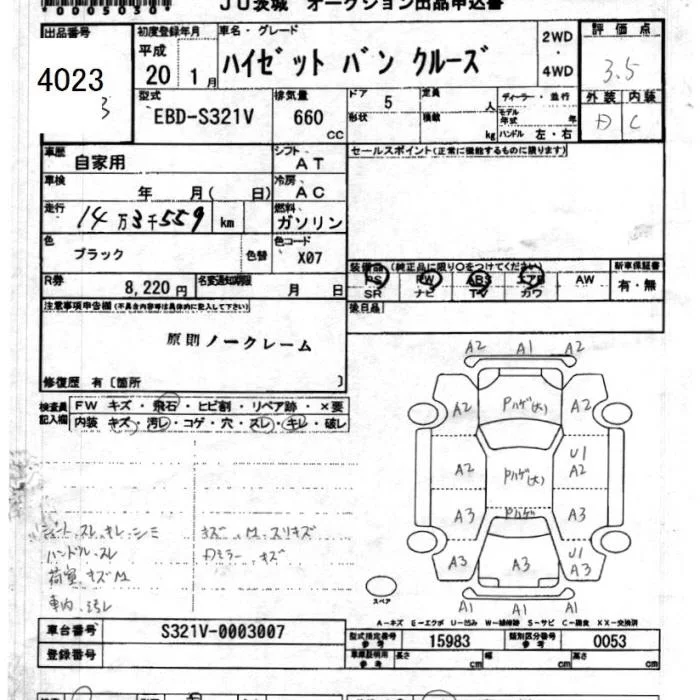 0005030
JU茨城 オークション出品申込書
出品番号
4023
3
初度登録年月
平成
20 1月
車名・グレード
ハイゼット バン クルーズ
2WD
・
4WD
評価点
3.5
外装 内装
D C
型式
EBD-S321V
排気量
660
CC
ドア 5
形状
定員 人
積載 kg
ディーラー・並行
モデル年式 年
ハンドル 左・右
車歴
自家用
シフト
AT
セールスポイント(正常に機能するものに限ります)
車検
年 月( 日)
冷房
AC
走行
14万3千559 km
燃料
ガソリン
色
ブラック
色替
色コード
X07
R券
8,220円
名変通知期限
月 日
装備品(純正品に限り〇をつけてください)
PS PW ABS エアB AW
SR ナビ TV カワ
新車保証書
有・無
後日品
注意事項申告欄(不具合内容等は具体的に記入して下さい)
原則ノークレーム
修復歴 有〔箇所 〕
検査員記入欄
FW キズ・飛石・ヒビ割・リペア跡・×要
内装 キズ・汚レ・コゲ・穴・スレ・キレ・破レ
シート.スレ.キレ.シミ
ハンドル.スレ
荷室.キズM
車内.汚レ
キズ.M.スリキズ
Dミラー.キズ
A2 A1 A2
A2 Pハゲ(大) A2
A2 Pハゲ(大) U1 A2
A3 Pハゲ A3
A3 A3 U1 A3
A1 A1
スペア
A-キズ E-エクボ U-凹み W-補修跡 S-サビ C-腐食 XX-交換済
車台番号
S321V-0003007
登録番号
型式指定番号
参考
15983
類別区分番号
参考
0053
車庫証明用
参考
長さ cm
幅 cm
高さ cm